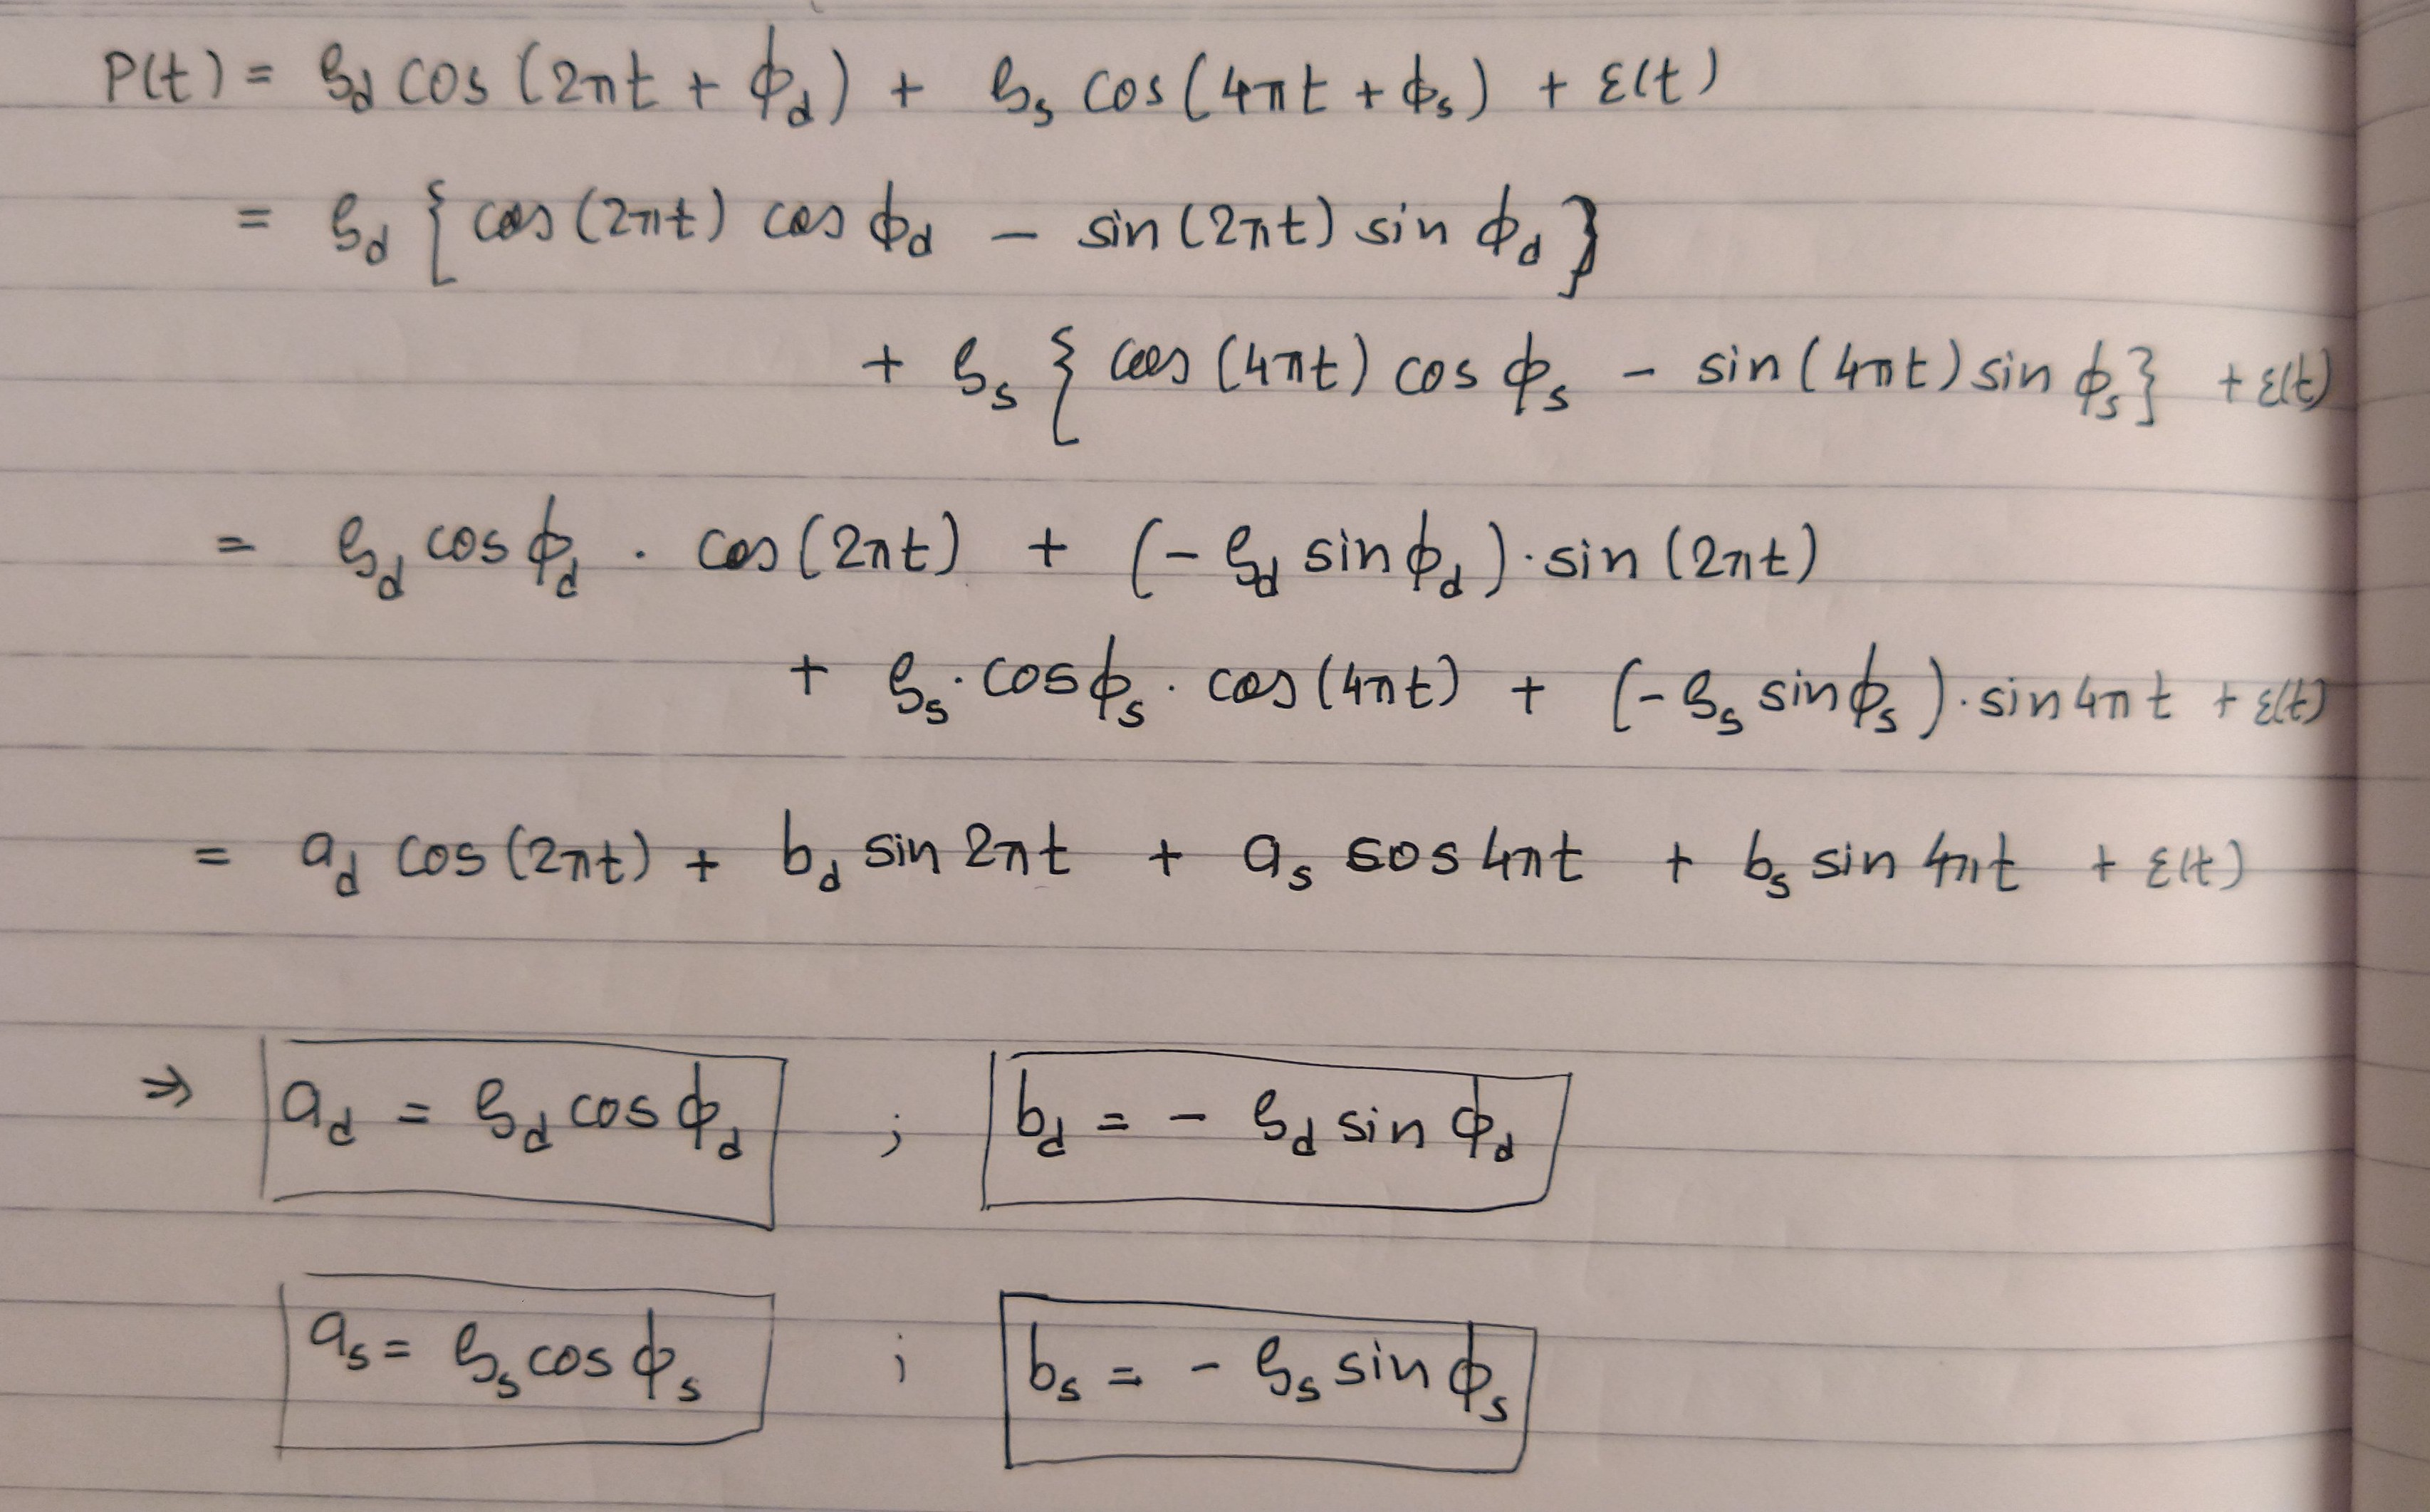 P(t) = ξ_d cos (2πt + ϕ_d) + ξ_s cos(4πt + ϕ_s) + ε(t)
= ξ_d { cos (2πt) cos ϕ_d − sin (2πt) sin ϕ_d }
+ ξ_s { cos (4πt) cos ϕ_s − sin (4πt) sin ϕ_s} + ε(t)
= ξ_d cos ϕ_d . cos (2πt) + (− ξ_d sin ϕ_d) . sin (2πt)
+ ξ_s . cos ϕ_s . cos (4πt) + (− ξ_s sin ϕ_s) . sin 4πt + ε(t)
= a_d cos (2πt) + b_d sin 2πt + a_s cos 4πt + b_s sin 4πt + ε(t)
⇒ a_d = ξ_d cos ϕ_d ; b_d = − ξ_d sin ϕ_d
a_s = ξ_s cos ϕ_s ; b_s = − ξ_s sin ϕ_s